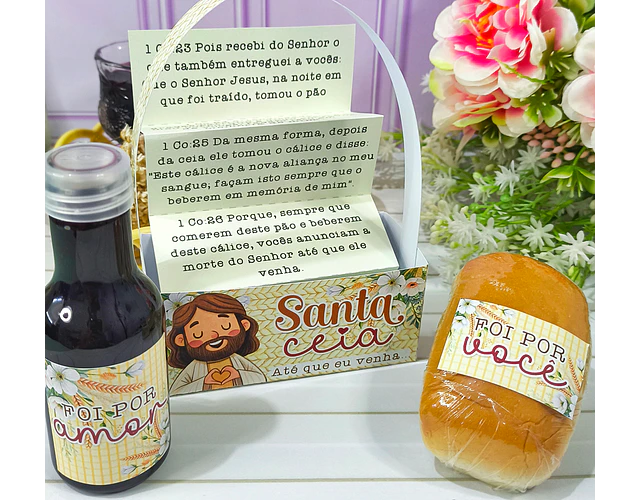 23 Pois recebi do Senhor o
também entreguei a vocês:
o Senhor Jesus, na noite em
que foi traído, tomou o pão
1 Co:25 Da mesma forma, depois
da ceia ele tomou o cálice e disse:
"Este cálice é a nova aliança no meu
sangue; façam isto sempre que o
beberem em memória de mim".
1 Co:26 Porque, sempre que
comerem deste pão e beberem
deste cálice, vocês anunciam a
morte do Senhor até que ele
venha.
Santa
ceia
Até que eu venha...
FOI POR
amor
FOI POR
você